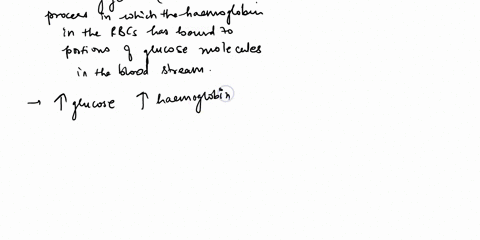 process in which the haemoglobin
in the RBCs has bound to
portions of glucose molecules
in the blood stream.
→ ↑ glucose ↑ haemoglobin